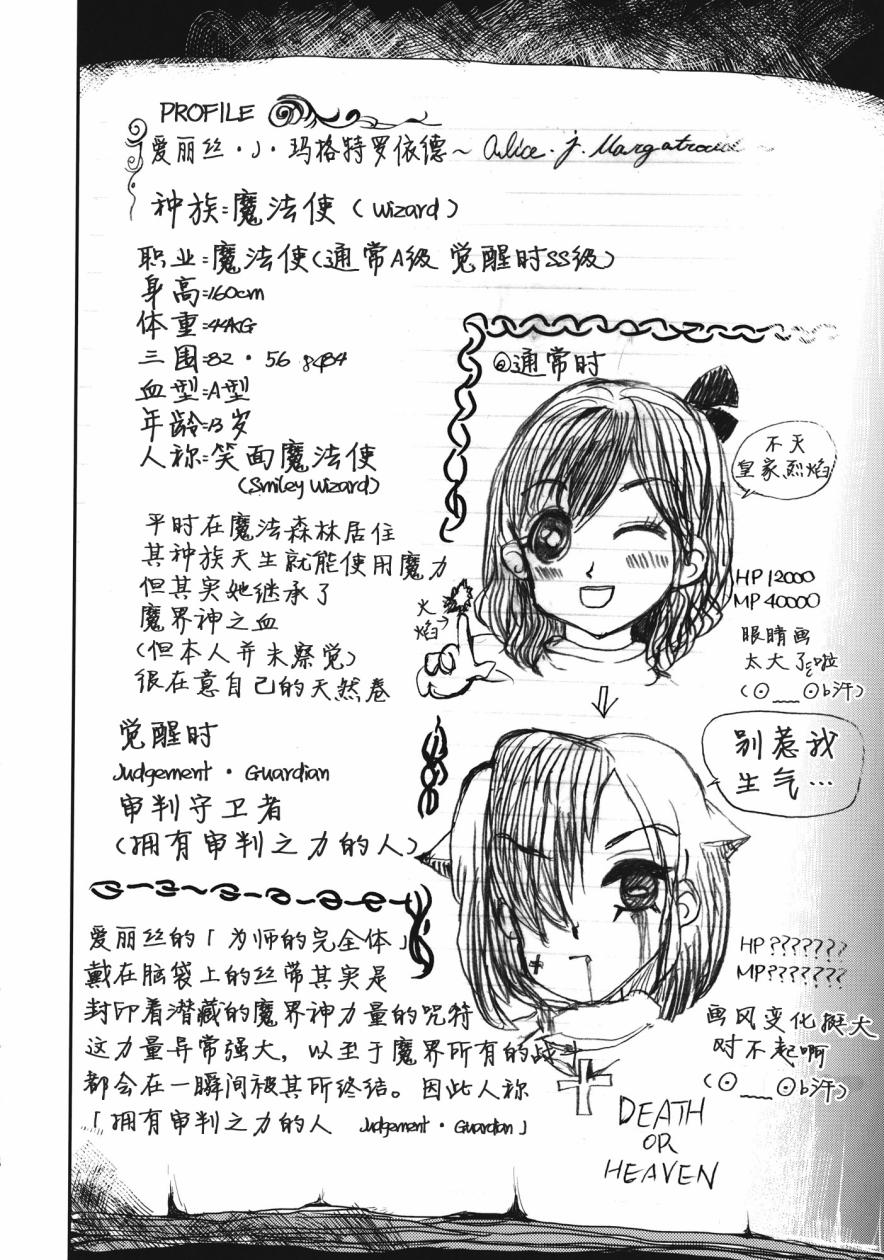 PROFILE
爱丽丝·J·玛格特罗依德~ Alice. J. Margatroid ~
种族:魔法使(Wizard)
职业:魔法使(通常A级 觉醒时SS级)
身高:160cm
体重:44KG
三围:82·56·84
血型:A型
年龄:13岁
人称:笑面魔法使
(Smiley Wizard)
平时在魔法森林居住
其种族天生就能使用魔力
但其实她继承了
魔界神之血
(但本人并未察觉)
很在意自己的天然卷
◎通常时
不灭
皇家烈焰
火焰→
HP 12000
MP 40000
眼睛画
太大了啦
(⊙﹏⊙b汗)
觉醒时
Judgement·Guardian
审判守卫者
(拥有审判之力的人)
别惹我
生气…
爱丽丝的「为师的完全体」
戴在脑袋上的丝带其实是
封印着潜藏的魔界神力量的咒符
这力量异常强大，以至于魔界所有的战斗
都会在一瞬间被其所终结。因此人称
「拥有审判之力的人 Judgement·Guardian」
HP???????
MP???????
画风变化挺大
对不起啊
(⊙﹏⊙b汗)
DEATH
OR
HEAVEN